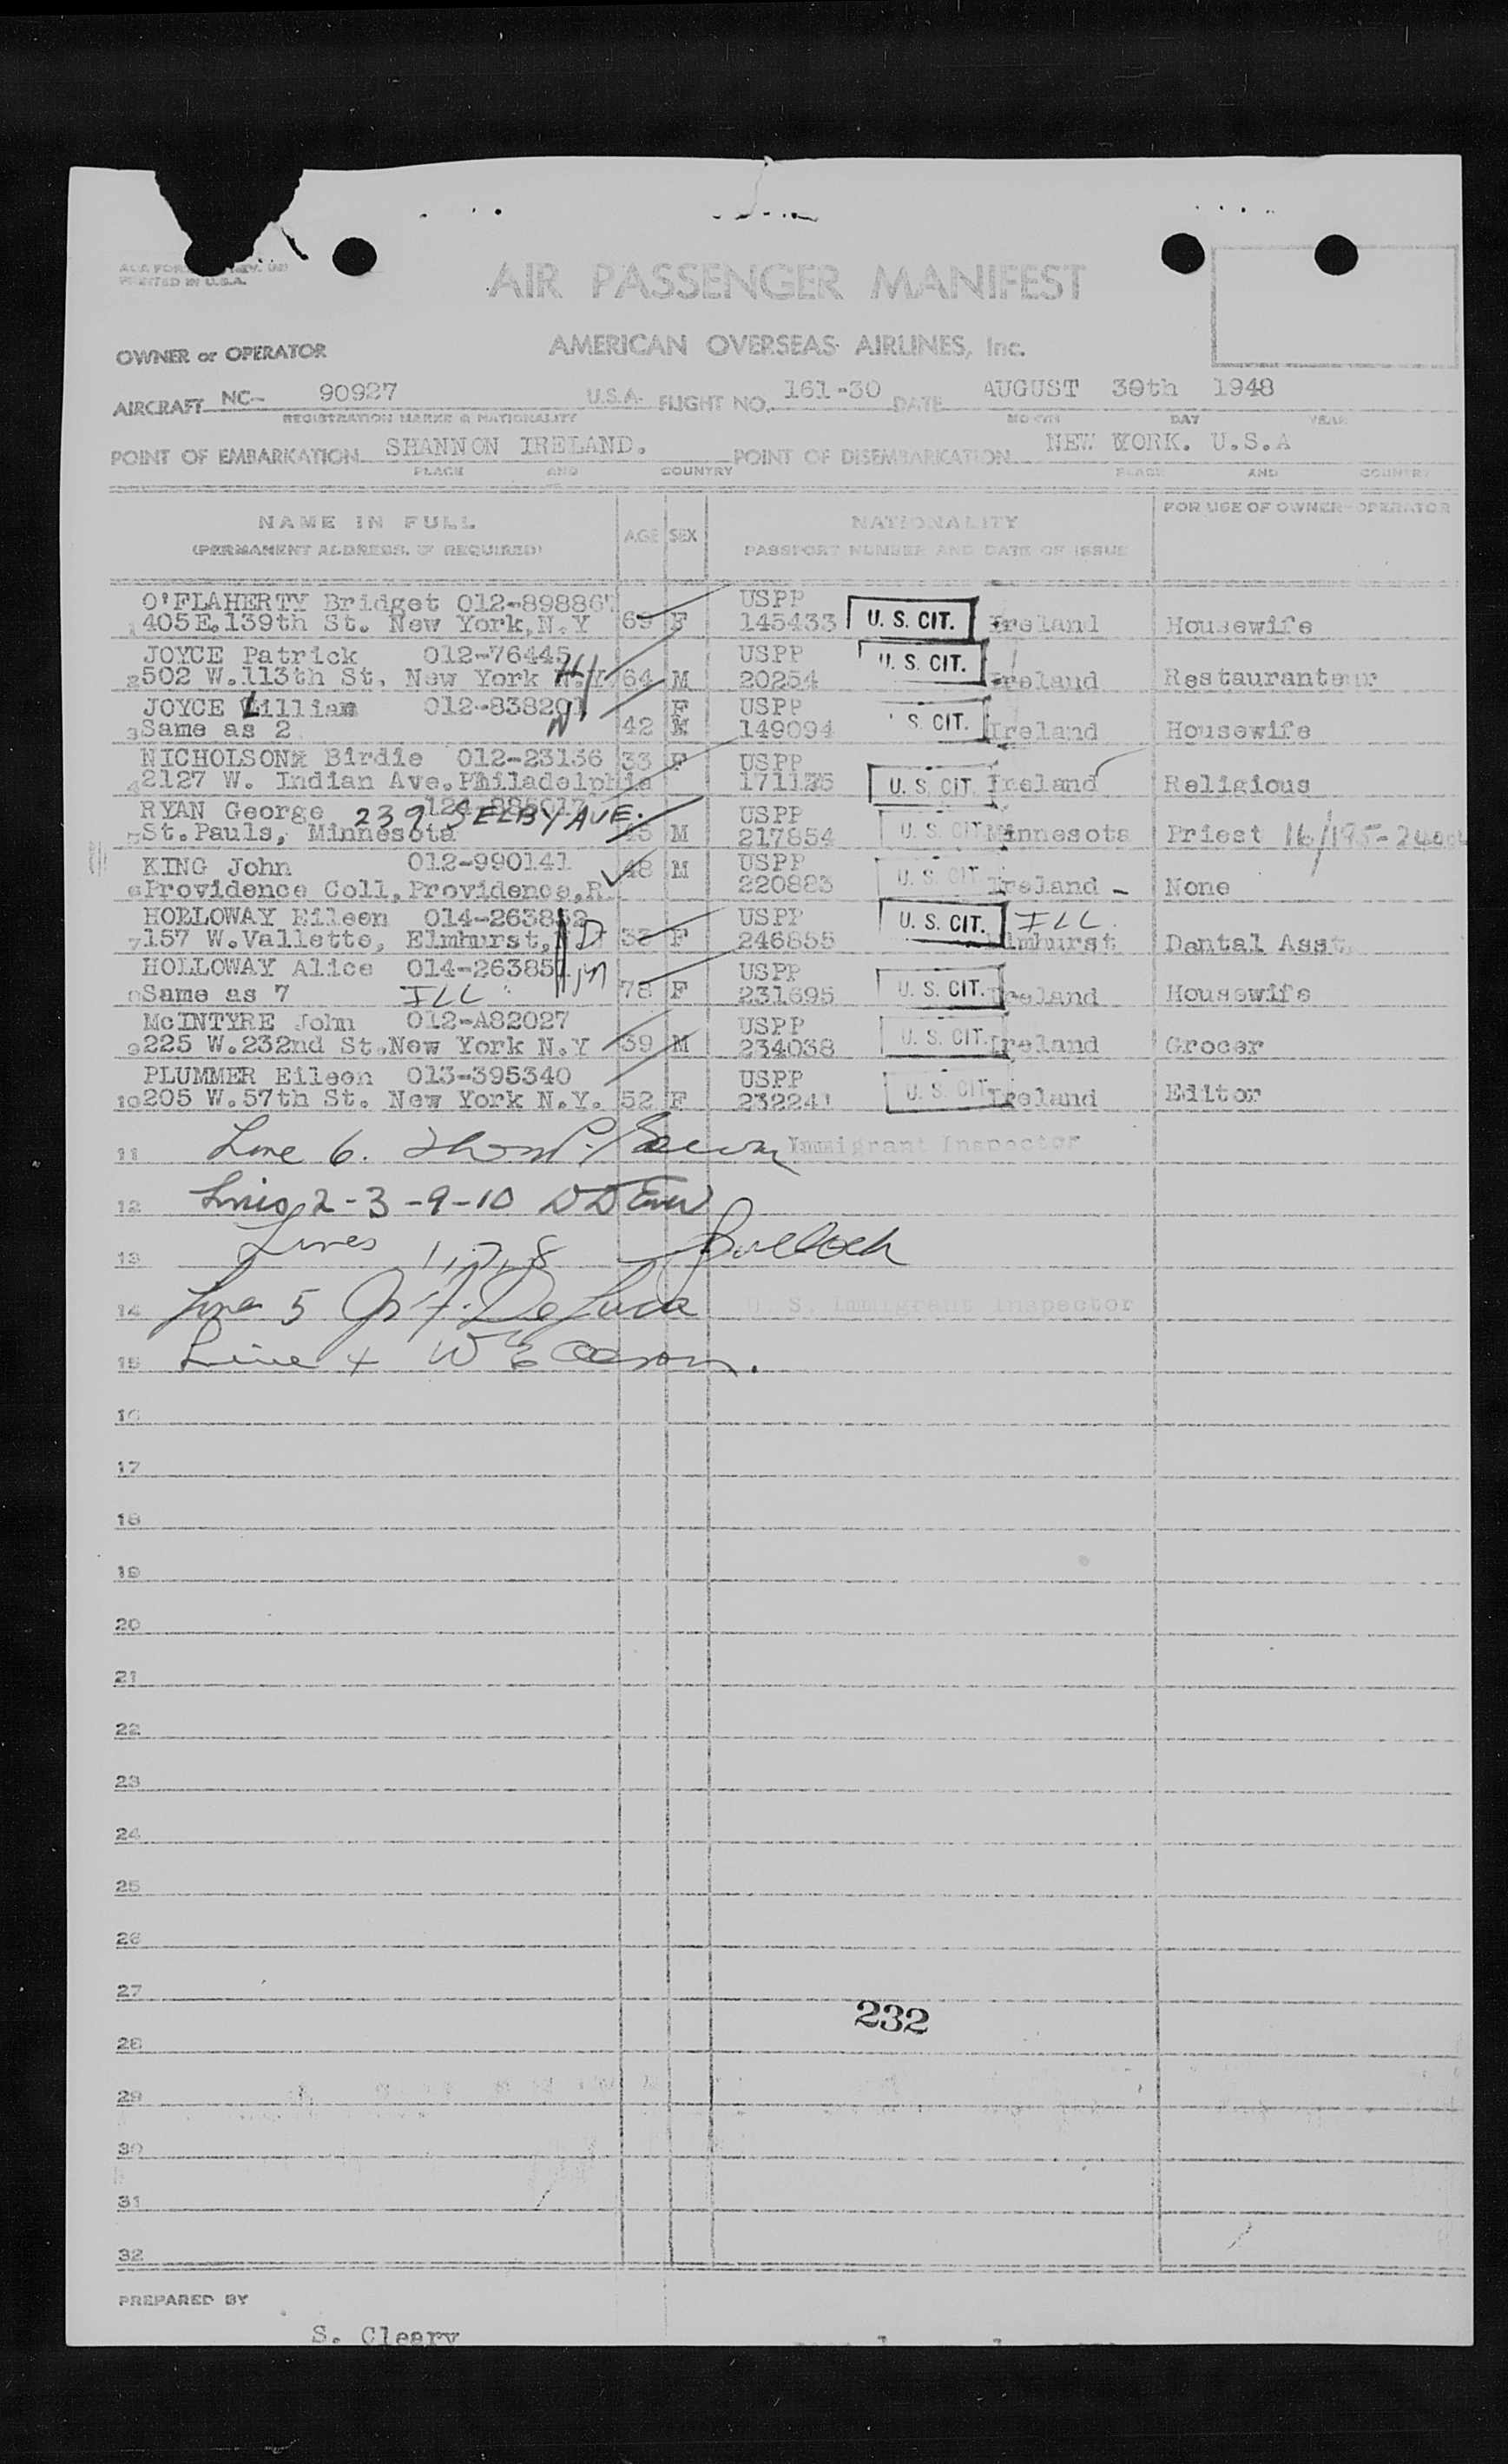 PRINTED IN U.S.A.
AIR PASSENGER MANIFEST
OWNER or OPERATOR AMERICAN OVERSEAS AIRLINES, Inc.
AIRCRAFT NC- 90927 U.S.A. FLIGHT NO. 161-30 DATE AUGUST 30th 1948
REGISTRATION MARKS & NATIONALITY MONTH DAY YEAR
POINT OF EMBARKATION SHANNON IRELAND. POINT OF DISEMBARKATION NEW YORK. U.S.A
PLACE AND COUNTRY PLACE AND COUNTRY
NAME IN FULL AGE SEX NATIONALITY FOR USE OF OWNER-OPERATOR
(PERMANENT ADDRESS, IF REQUIRED) PASSPORT NUMBER AND DATE OF ISSUE
O'FLAHERTY Bridget 012-898867 USPP
1 405E.139th St. New York,N.Y 69 F 145433 U. S. CIT. Ireland Housewife
JOYCE Patrick 012-76445 USPP
2 502 W.113th St. New York N.Y 64 M 20254 U. S. CIT. Ireland Restauranteur
JOYCE Lilliam 012-838201 F USPP
3 Same as 2 42 M 149094 S. CIT. Ireland Housewife
NICHOLSON Birdie 012-23136 33 F USPP
4 2127 W. Indian Ave.Philadelphia 171135 U. S. CIT Ireland Religious
RYAN George 239 SELBY AVE. USPP
5 St.Pauls, Minnesota 45 M 217854 U. S. CIT Minnesota Priest
KING John 012-990141 48 M USPP
6 Providence Coll,Providence,R. 220883 U. S. CIT Ireland - None
HOLLOWAY Eileen 014-263852 USPP
7 157 W.Vallette, Elmhurst, F 246855 U. S. CIT. ILL Elmhurst Dental Asst
HOLLOWAY Alice 014-26385 USPP
8 Same as 7 ILL 78 F 231695 U. S. CIT. Ireland Housewife
McINTYRE John 012-A82027 USPP
9 225 W.232nd St.New York N.Y 39 M 234038 U. S. CIT. Ireland Grocer
PLUMMER Eileen 013-395340 USPP
10 205 W.57th St. New York N.Y. 52 F 232241 U. S. CIT Ireland Editor
11 Line 6. Immigrant Inspector
12 Lines 2-3-9-10
13 Lines 1,7,8 Bulloch
14 Line 5 De Luca U. S. Immigrant Inspector
15 Line 4 W E
16
17
18
19
20
21
22
23
24
25
26
27
232
28
29
30
31
32
PREPARED BY
S. Cleary